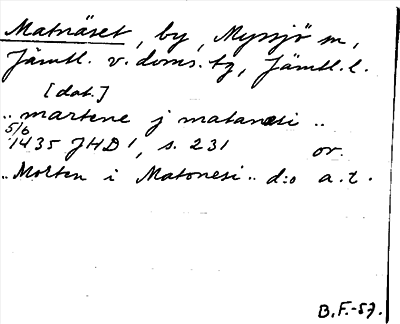 Matnäset, by, Myssjö sn,
Jämtl. v. doms. tg, Jämtl. l.
[dat.]
"martene j matanesi"
5/6
1435 JHD 1, s. 231 or.
"Morten i Matonesi" d:o a.t.
B.F.-57.